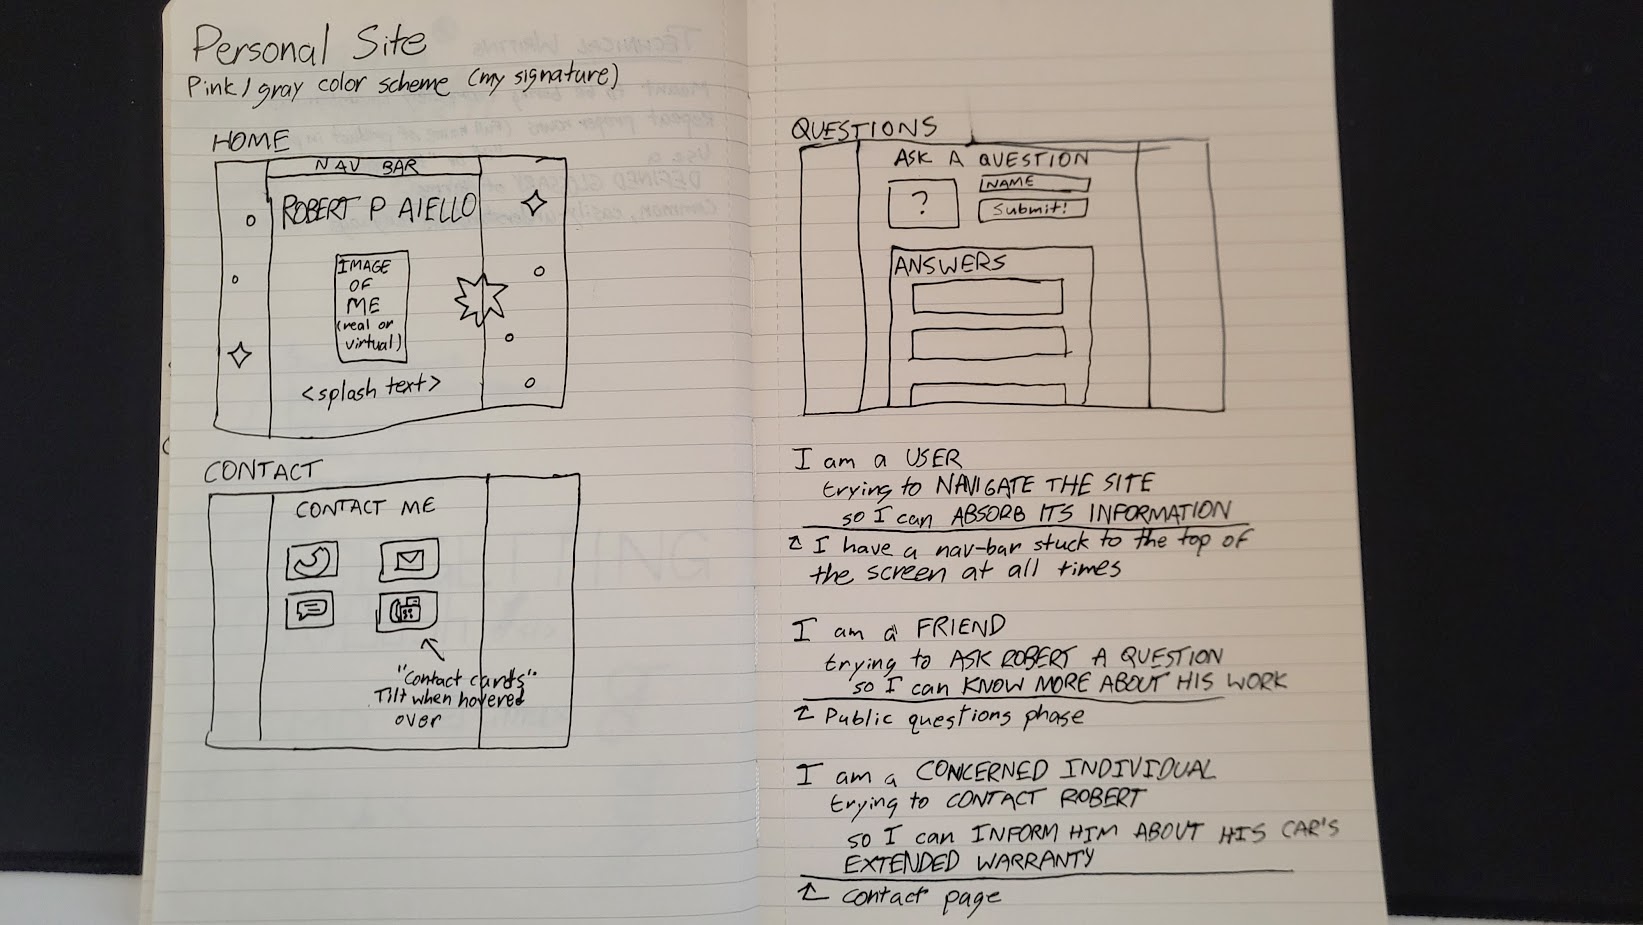 Personal Site
Pink/gray color scheme (my signature)
HOME
NAV BAR
ROBERT P AIELLO
IMAGE
OF
ME
(real or
virtual)
<splash text>
CONTACT
CONTACT ME
"Contact cards"
Tilt when hovered
over
QUESTIONS
ASK A QUESTION
?
NAME
Submit!
ANSWERS
I am a USER
trying to NAVIGATE THE SITE
so I can ABSORB ITS INFORMATION
I have a nav-bar stuck to the top of
the screen at all times
I am a FRIEND
trying to ASK ROBERT A QUESTION
so I can KNOW MORE ABOUT HIS WORK
Public questions phase
I am a CONCERNED INDIVIDUAL
trying to CONTACT ROBERT
so I can INFORM HIM ABOUT HIS CAR'S
EXTENDED WARRANTY
Contact page